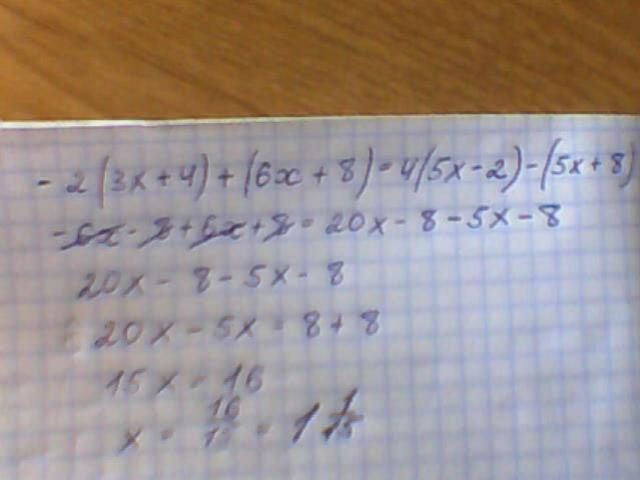 - 2(3x+4)+(6x+8)=4(5x-2)-(5x+8)
-6x-8+6x+8=20x-8-5x-8
20x-8-5x-8
20x-5x=8+8
15x=16
x = 16/15 = 1 1/15